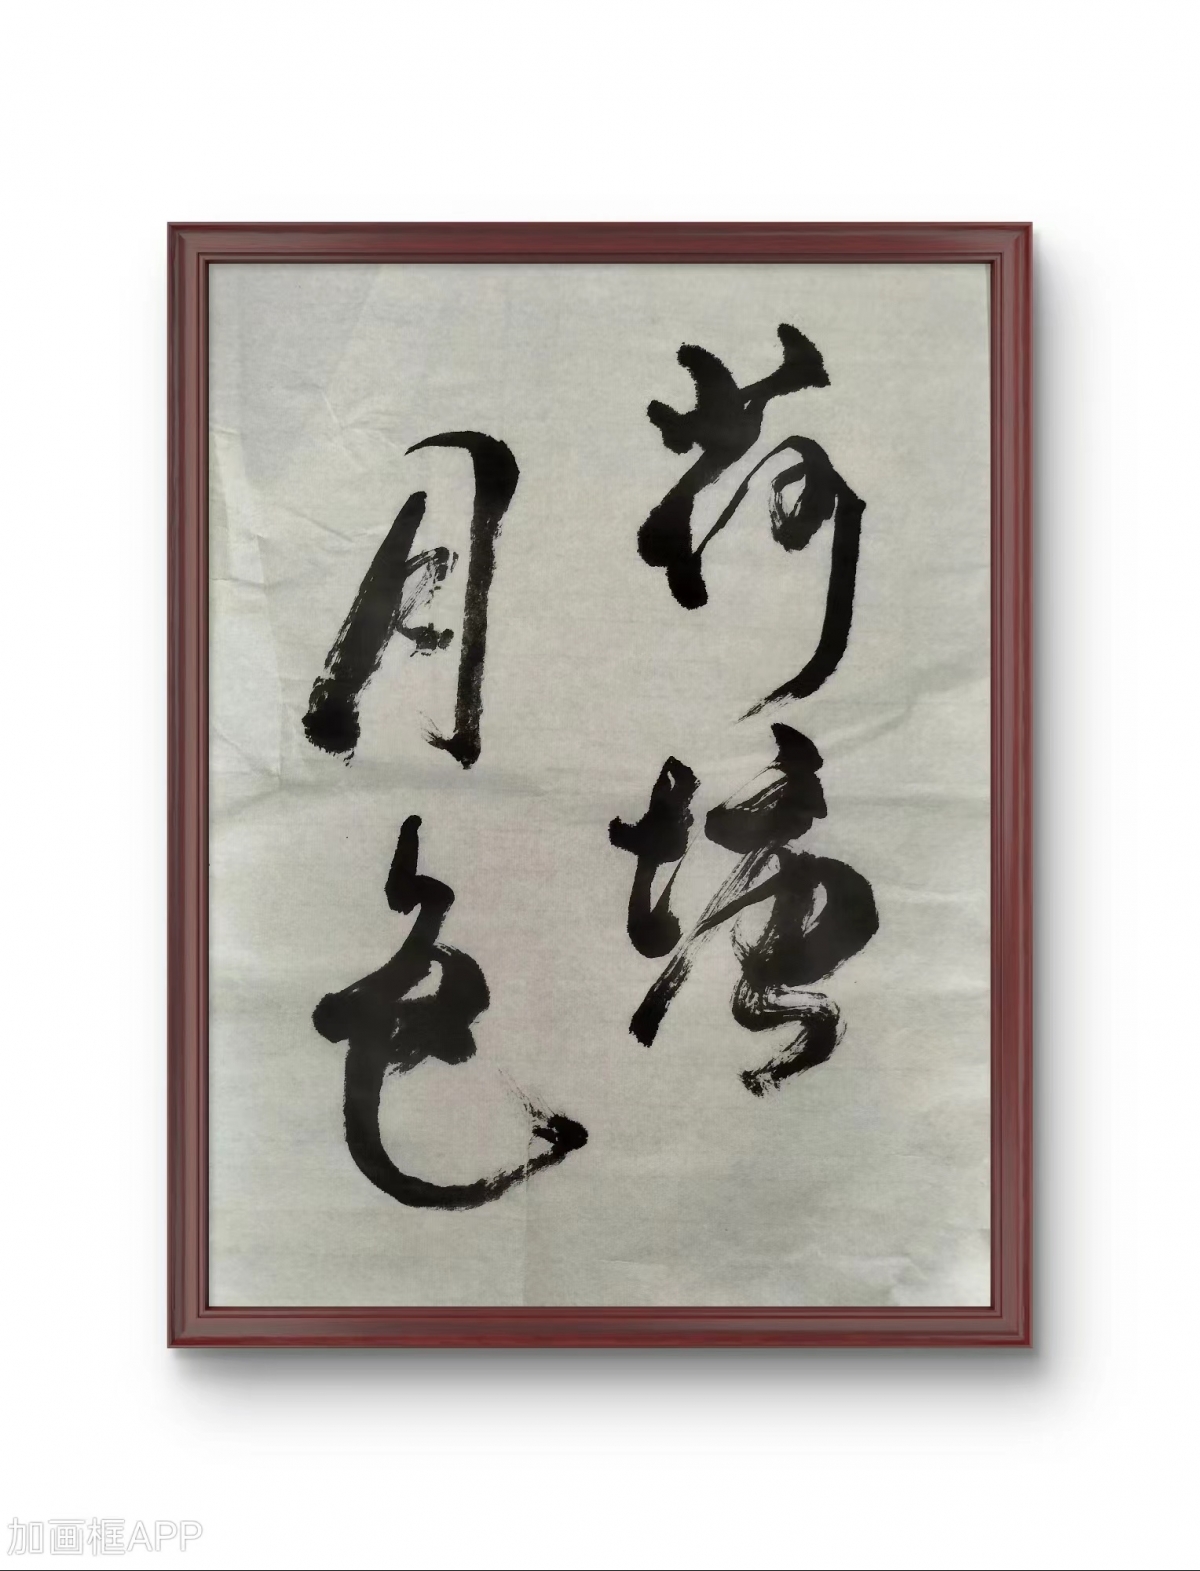 荷塘
月色
加画框APP